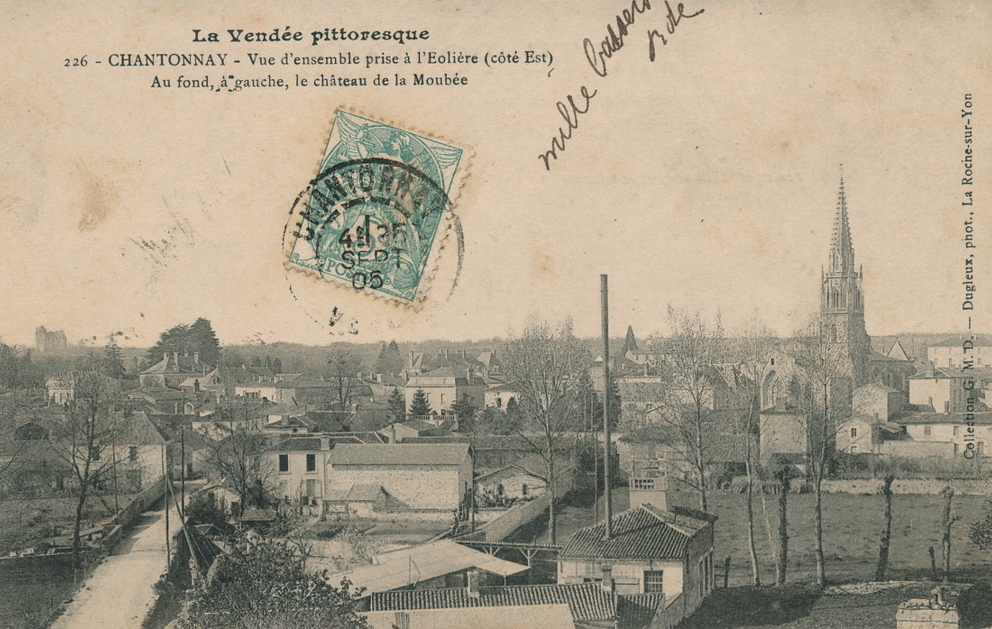 La Vendée pittoresque
226 - CHANTONNAY - Vue d'ensemble prise à l'Eolière (côté Est)
Au fond, à gauche, le château de la Moubée
mille
CHANTONNAY
SEPT
05
Collection G. M. D. — Dugleux, phot., La Roche-sur-Yon